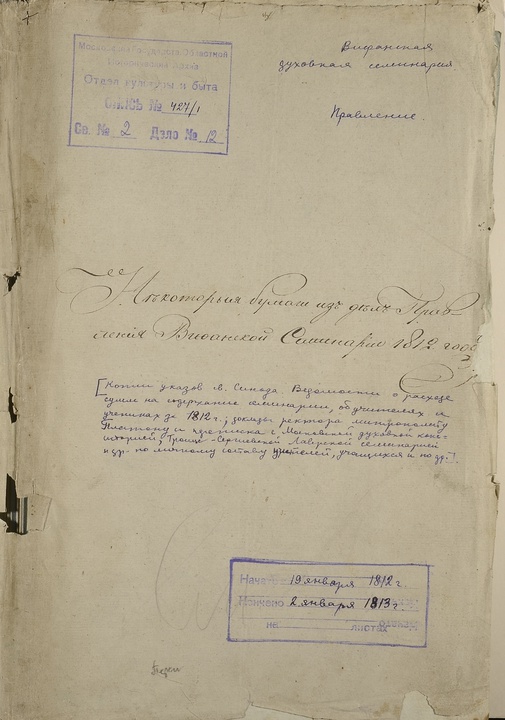 Московской Областной
Отдел культуры и быта
Оп. № 427/1
Св. № 2 Дело № 12
Вифанская
духовная семинария
Правление.
Нѣкоторыя бумаги изъ дѣлъ Прав
ленія Виѳанской Семинаріи 1812 года
[Копии указов св. Синода. Ведомости о расходе
сумм на содержание семинарии, об учителях и
учениках за 1812 г.; доклады ректора митрополиту
Платону и переписка с Московской духовной конс-
историей, Троице-Сергиевской Лаврской семинарией
и др. по личному составу учителей, учащихся и по др.]
Начато 19 января 1812 г.
Кончено 2 января 1813 г.
на листах